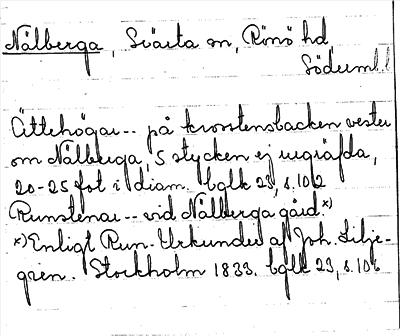 Nålberga, Svärta sn, Rönö hd
Söderml.
Ättehögar -- på korstensbacken vester
om Nålberga, 5 stycken ej urgräfda,
20-25 fot i diam. bglk 23, s. 102
Runstenar -- vid Nålberga gård x)
x) Enligt Run-Urkunder af Joh. Lilje-
gren. Stockholm 1833. bglk 23, s. 106